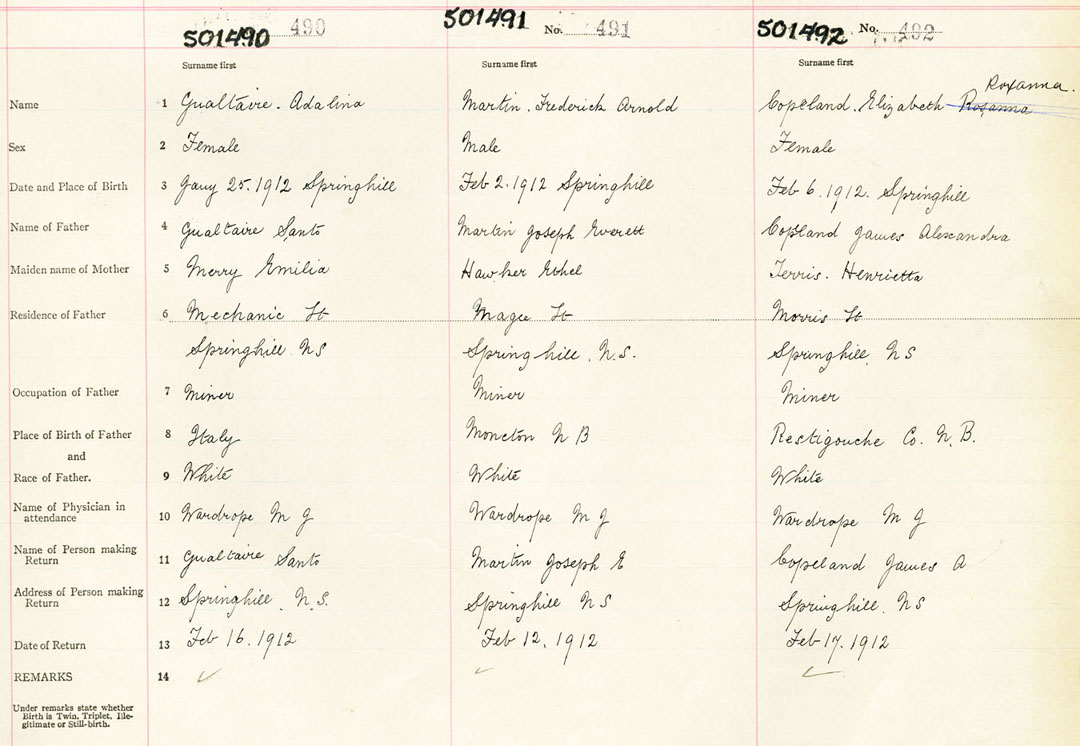 501490 490 501491 No. 491 501492 No. 492
Surname first Surname first Surname first
Roxanna.
Name 1 Gualtaire. Adalina Martin. Frederick Arnold Copeland. Elizabeth Roxanna
Sex 2 Female Male Female
Date and Place of Birth 3 Jany 25. 1912 Springhill Feb 2. 1912 Springhill Feb 6. 1912. Springhill
Name of Father 4 Gualtaire Santo Martin Joseph Everett Copeland James Alexandra
Maiden name of Mother 5 Merry Emilia Hawker Ethel Terris. Henrietta
Residence of Father 6 Mechanic St Magee St Morris St
Springhill NS Springhill, N.S. Springhill, NS
Occupation of Father 7 Miner Miner Miner
Place of Birth of Father 8 Italy Moncton N B Restigouche Co. N.B.
and
Race of Father. 9 White White White
Name of Physician in
attendance 10 Wardrope M J Wardrope M J Wardrope M J
Name of Person making
Return 11 Gualtaire Santo Martin Joseph E Copeland James A
Address of Person making
Return 12 Springhill, N.S. Springhill NS Springhill, NS
Date of Return 13 Feb 16. 1912 Feb 12, 1912 Feb 17, 1912
REMARKS 14
Under remarks state whether
Birth is Twin, Triplet, Ille-
gitimate or Still-birth.